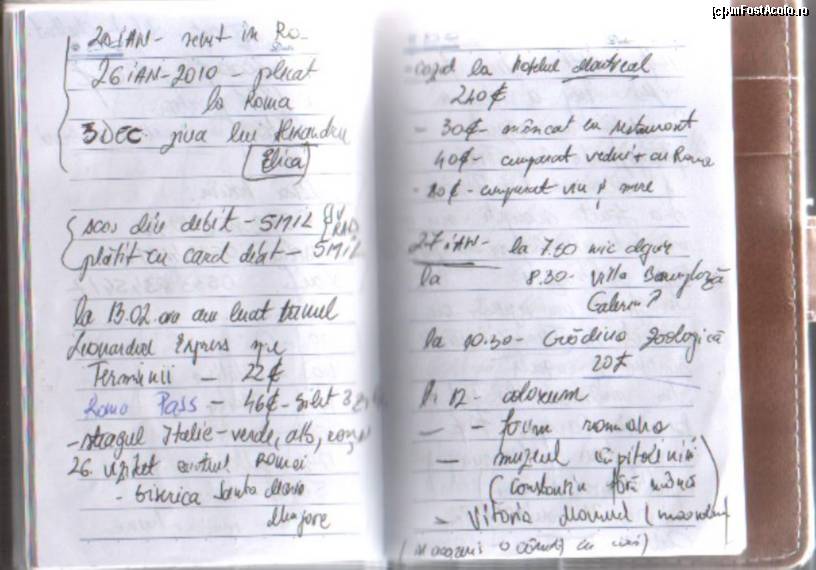 (c)AmFostAcolo.ro
20 IAN - venit în Ro-
26 IAN-2010 - plecat
la Roma
3 DEC ziua lui Alexandru
Elica
scos din debit - 5MIL
plătit cu card debit - 5MIL
la 13.02 am luat trenul
Leonardul Express spre
Terminii - 22€
Roma Pass - 46€ -
- steagul Italie - verde, alb, roșu
26. vizitet centrul Romei
- biserica Santa Maria
Majore
cazat la hotelul Montreal
240€
- 30€ - mâncat la restaurant
40€ - cumparat vederi + cu Roma
10€ - cumparat și mere
27 IAN - la 7.50 mic dejun
la 8.30 - Villa
Galerie?
la 10.30 - Grădina Zoologică
20€
12 - coloseum
- forum romano
- muzeul capitolinii
(Constantin fără mână)
- Vitoria Manuel